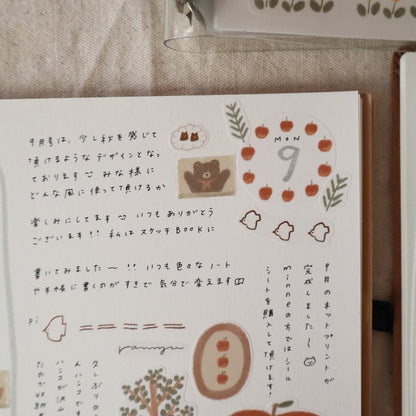 9月号は、少し秋を感じて
頂けるようなデザインとなっ
ております〜 みな様に
どんな風に使って頂けるか
楽しみにしてます〜 いつもありがとう
ございます!! 私はスケッチBOOKに
書いてみました〜!! いつも色々なノート
や手帳に書くのがすきで気分で変えます
MON
9
9月のネットプリントが
完成しました!〜
minneの方ではシール
シートを購入して頂けます!
pi
久しぶりの
んハンコです
ハンコが沢